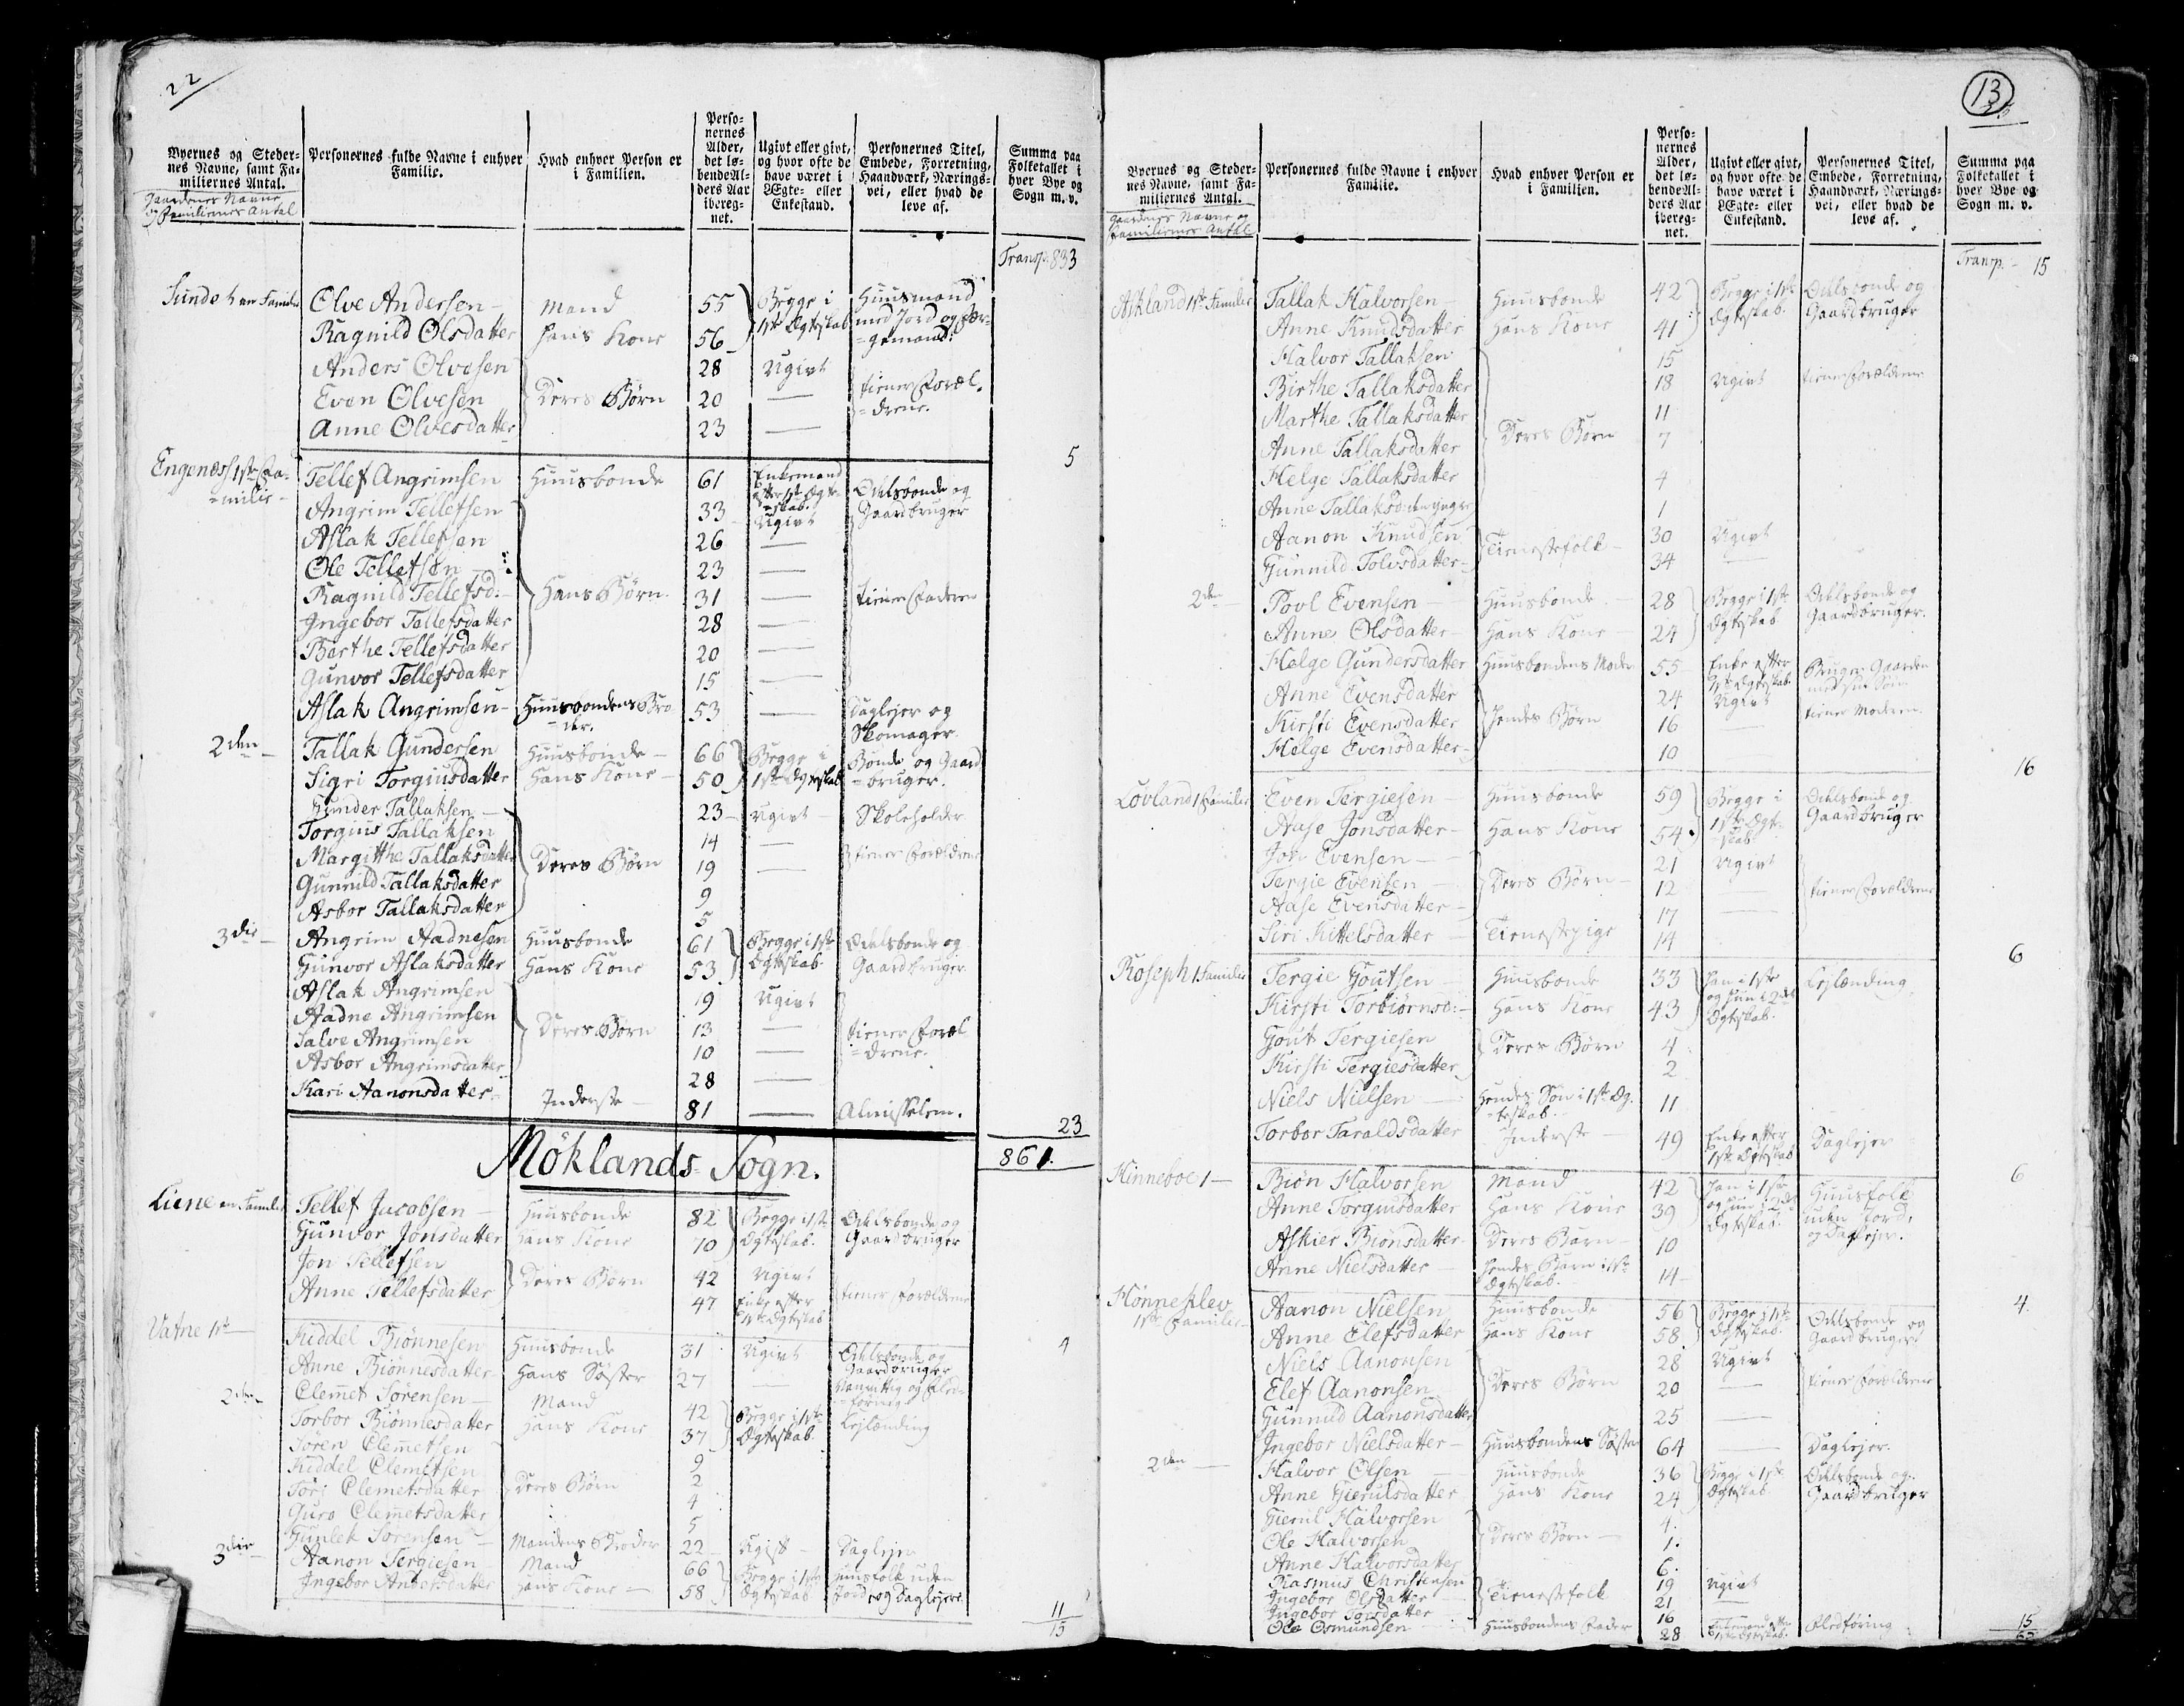 22
Byernes og Steder-
nes Navne, samt Fa-
miliernes Antal.
Gaardenes Navne
og Familiernes Antal
Personernes fulde Navne i enhver
Familie.
Hvad enhver Person er
i Familien.
Perso-
nernes
Alder,
det lø-
bende Al-
ders Aar
ibereg-
net.
Ugivt eller givt,
og hvor ofte de
have været i
Ægte- eller
Enkestand.
Personernes Titel,
Embede, Forretning,
Haandværk, Nærings-
vei, eller hvad de
leve af.
Summa paa
Folketallet i
hver Bye og
Sogn m. v.
Transp. 833
Sundet en Familie Olve Andersen Mand 55 Begge i Huusmand
Ragnild Olsdatter Hans Kone 56 1ste Ægteskab med Jord og Fær-
gemand.
Anders Olvesen 28 Ugivt
Even Olvesen Deres Børn 20 — tiener Foræl-
drene.
Anne Olvesdatter 23 —
5
Engenæs 1ste Fa-
milie Tellef Angrimsen Huusbonde 61 Enkemand
efter 1ste Ægte-
skab. Odelsbonde og
Gaardbruger
Angrim Tellefsen 33 Ugivt
Aslak Tellefsen 26 —
Ole Tellefsen 23 —
Ragnild Tellefsd. Hans Børn 31 — tiener Faderen
Ingebor Tellefsdatter 28 —
Berthe Tellefsdatter 20 —
Gunvor Tellefsdatter 15 —
Aslak Angrimsen Huusbondens Bro-
der. 53 — Daglejer og
Skomager
2den Tallak Gundersen Huusbonde 66 Begge i Bonde og Gaard
Sigri Torgiusdatter Hans Kone 50 1ste Ægteskab bruger.
Gunder Tallaksen 23 Ugivt Skoleholder
Torgius Tallaksen 14 —
Margitthe Tallaksdatter Deres Børn 19 — tiener Forældrene
Gunnild Tallaksdatter 9
Asbor Tallaksdatter 5
3die Angrim Aadnesen Huusbonde 61 Begge i 1ste Odelsbonde og
Gunvor Aslaksdatter Hans Kone 53 Ægteskab Gaardbruger
Aslak Angrimsen 19 Ugivt
Aadne Angrimsen Deres Børn 13 — tiener Foræl
Salve Angrimsen 10 — drene.
Asbor Angrimsdatter 28 —
Kari Aanonsdatter Inderste 81 — Almisselem.
23
861.
Möklands Sogn.
Liene en Familie Tellef Jacobsen Huusbonde 82 Begge i 1ste Odelsbonde og
Gunvor Jonsdatter Hans Kone 70 Ægteskab. Gaardbruger
Jon Tellefsen Deres Børn 42 Ugivt
Anne Tellefsdatter 47 Enke efter
1ste Ægteskab tiener Forældrene
4
Vatne 1ste Kiddel Biönnesen Huusbonde 31 Ugivt Odelsbonde og
Gaardbruger
Anne Biönnesdatter Hans Søster 27 —
2den Clemet Sörensen Mand 42 Begge i 1ste Lejlænding
Torbor Biönnesdatter Hans Kone 37 Ægteskab
Sören Clemetsen 9
Kiddel Clemetsen 2
Tori Clemetsdatter Deres Børn 4
Guro Clemetsdatter 5
Gunlek Sörensen Mandens Broder 22 Ugift Daglejer
3die Aanon Tergiesen Mand 66 Begge i 1ste Huusfolk uden
Ingebor Andersdatter Hans Kone 58 Ægteskab Jord og Daglejere.
11
15
13
Byernes og Steder-
nes Navne, samt Fa-
miliernes Antal.
Gaardenes Navne og
Familiernes Antal
Personernes fulde Navne i enhver
Familie.
Hvad enhver Person er
i Familien.
Perso-
nernes
Alder,
det lø-
bende Al-
ders Aar
ibereg-
net.
Ugivt eller givt,
og hvor ofte de
have været i
Ægte- eller
Enkestand.
Personernes Titel,
Embede, Forretning,
Haandværk, Nærings-
vei, eller hvad de
leve af.
Summa paa
Folketallet i
hver Bye og
Sogn m. v.
Transp. 15
Askland 1ste Familie Tallak Halvorsen Huusbonde 42 Begge i 1ste Odelsbonde og
Anne Knudsdatter Hans Kone 41 Ægteskab. Gaardbruger
Halvor Tallaksen 15
Birthe Tallaksdatter 18 Ugivt tiener Forældrene
Marthe Tallaksdatter 11
Anne Tallaksdatter Deres Børn 7
Helge Tallaksdatter 4
Anne Tallaksd: den yngre 1
Aanon Knudsen Tienestefolk 30 Ugivt
Gunnild Tolvsdatter 34 —
2den Povl Evensen Huusbonde 28 Begge i 1ste Odelsbonde og
Anne Olsdatter Hans Kone 24 Ægteskab Gaardbruger.
Helge Gundersdatter Huusbondens Moder 55 Enke efter
1ste Ægteskab Bruger Gaarden
med sin Søn
Anne Evensdatter 24 Ugivt
Kirsti Evensdatter Hendes Børn 16 — tiener Moderen
Helge Evensdatter 10 —
16
Lovland 1 Familie Even Tergiesen Huusbonde 59 Begge i Odelsbonde og
Aase Jonsdatter Hans Kone 54 1ste Ægte-
skab Gaardbruger
Jon Evensen 21 Ugivt
Tergie Evensen Deres Børn 12 — tiener Forældrene
Aase Evensdatter 17 —
Siri Kittelsdatter Tienestepige 14
6
Roseph 1 Familie Tergie Goutsen Huusbonde 33 Han i 1ste Lejlænding
Kirsti Torbiörnsd: Hans Kone 43 og hun i 2det
Ægteskab.
Gout Tergiesen Deres Børn 4
Kirsti Tergiesdatter 2
Niels Nielsen Hendes Søn i 1ste Æg-
teskab. 11
Torbor Taraldsdatter Inderste 49 Enke efter
1ste Ægteskab Daglejer
6
Hinneboe 1 Biön Halvorsen Mand 42 Han i 1ste Huusfolk
Anne Torgiusdatter Hans Kone 39 og hun i 2det
Ægteskab. uden Jord,
og Daglejer.
Askier Biönsdatter Deres Barn 10
Anne Nielsdatter Hendes Barn i 1ste
Ægteskab. 14
4
Hönneklev
1ste Familie Aanon Nielsen Huusbonde 56 Begge i 1ste Odelsbonde og
Anne Elefsdatter Hans Kone 58 Ægteskab. Gaardbruger
Niels Aanonsen 28 Ugivt
Elef Aanonsen Deres Børn 20 — tiener Forældrene
Gunnild Aanonsdatter 25 —
Ingebor Nielsdatter Huusbondens Søster 64 — Daglejer.
2den Halvor Olsen Huusbonde 36 Begge i 1ste Odelsbonde og
Anne Gierulsdatter Hans Kone 24 Ægteskab. Gaardbruger
Gierul Halvorsen 4.
Ole Halvorsen Deres Børn 1.
Anne Halvorsdatter 6.
Rasmus Christensen 19 Ugivt
Ingebor Olsdatter Tienestefolk 21 —
Ingebor Torsdatter 16
Ole Osmundsen Huusbondens Fader 28 Enkemand efter
1ste Ægteskab. Fledføring
15